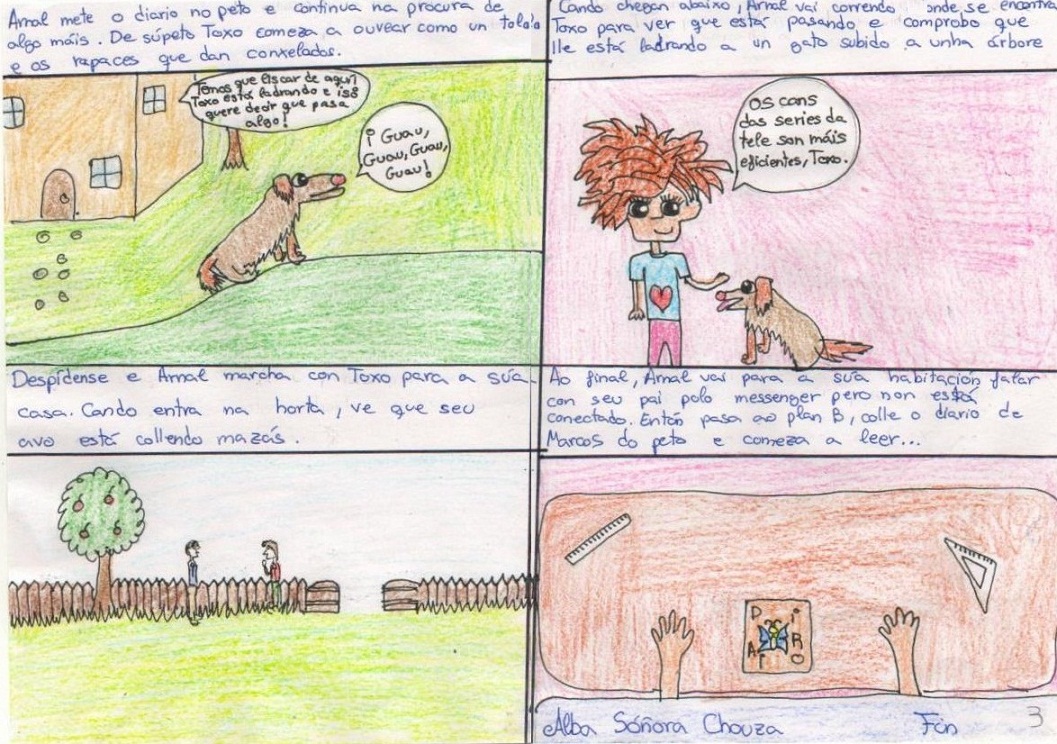 Arnal mete o diario no peto e continua na procura de
algo máis. De súpeto Toxo comeza a ouvear como un tolo
e os rapaces que dan conxelados.
Temos que liscar de aquí!
Toxo está ladrando e iso
quere decir que pasa
algo!
¡ Guau,
Guau, Guau,
Guau!
Cando chegan abaixo, Arnal vai correndo onde se encontra
Toxo para ver que está pasando e comprobo que
lle está ladrando a un gato subido a unha árbore
Os cans
das series da
tele son máis
eficientes, Toxo.
Despídense e Arnal marcha con Toxo para a súa
casa. Cando entra na horta, ve que seu
avo está collendo mazás.
Ao final, Arnal vai para a súa habitación falar
con seu pai polo messenger pero non está
conectado. Entón pasa ao plan B, colle o diario de
Marcos do peto e comeza a leer...
DIARIO
Alba Sóñora Chouza Fin 3